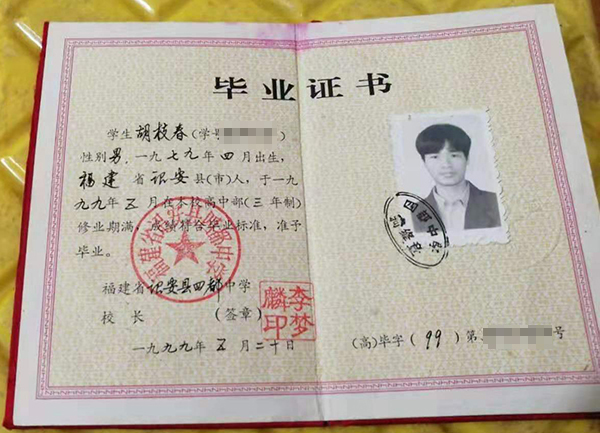 毕业证书
学生胡枝春(学号 ).
性别男,一九七九年四月出生,
福建省诏安县(市)人,于一九
九九年五月在本校高中部(三年制)
修业期满,成绩符合毕业标准,准予
毕业。
福建省诏安县四都中学
校长 (签章)
李梦麟印
一九九九年五月二十日
(高)毕字(99)第 号